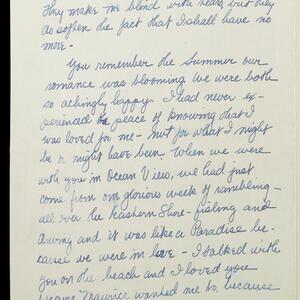 They make me blind with tears, but they
do soften the fact that I shall have no
more -
You remember the Summer our
romance was blooming we were both
so achingly happy. I had never ex-
perienced the peace of knowing that I
was loved for me - not for what I might
be or might have been. When we were
with you in Ocean View, we had just
come from our glorious week of rambling
all over the Eastern Shore - fishing and
and it was like a Paradise be-
cause we were in love - I talked with
you on the beach and I loved you
because Maurice wanted me to, because